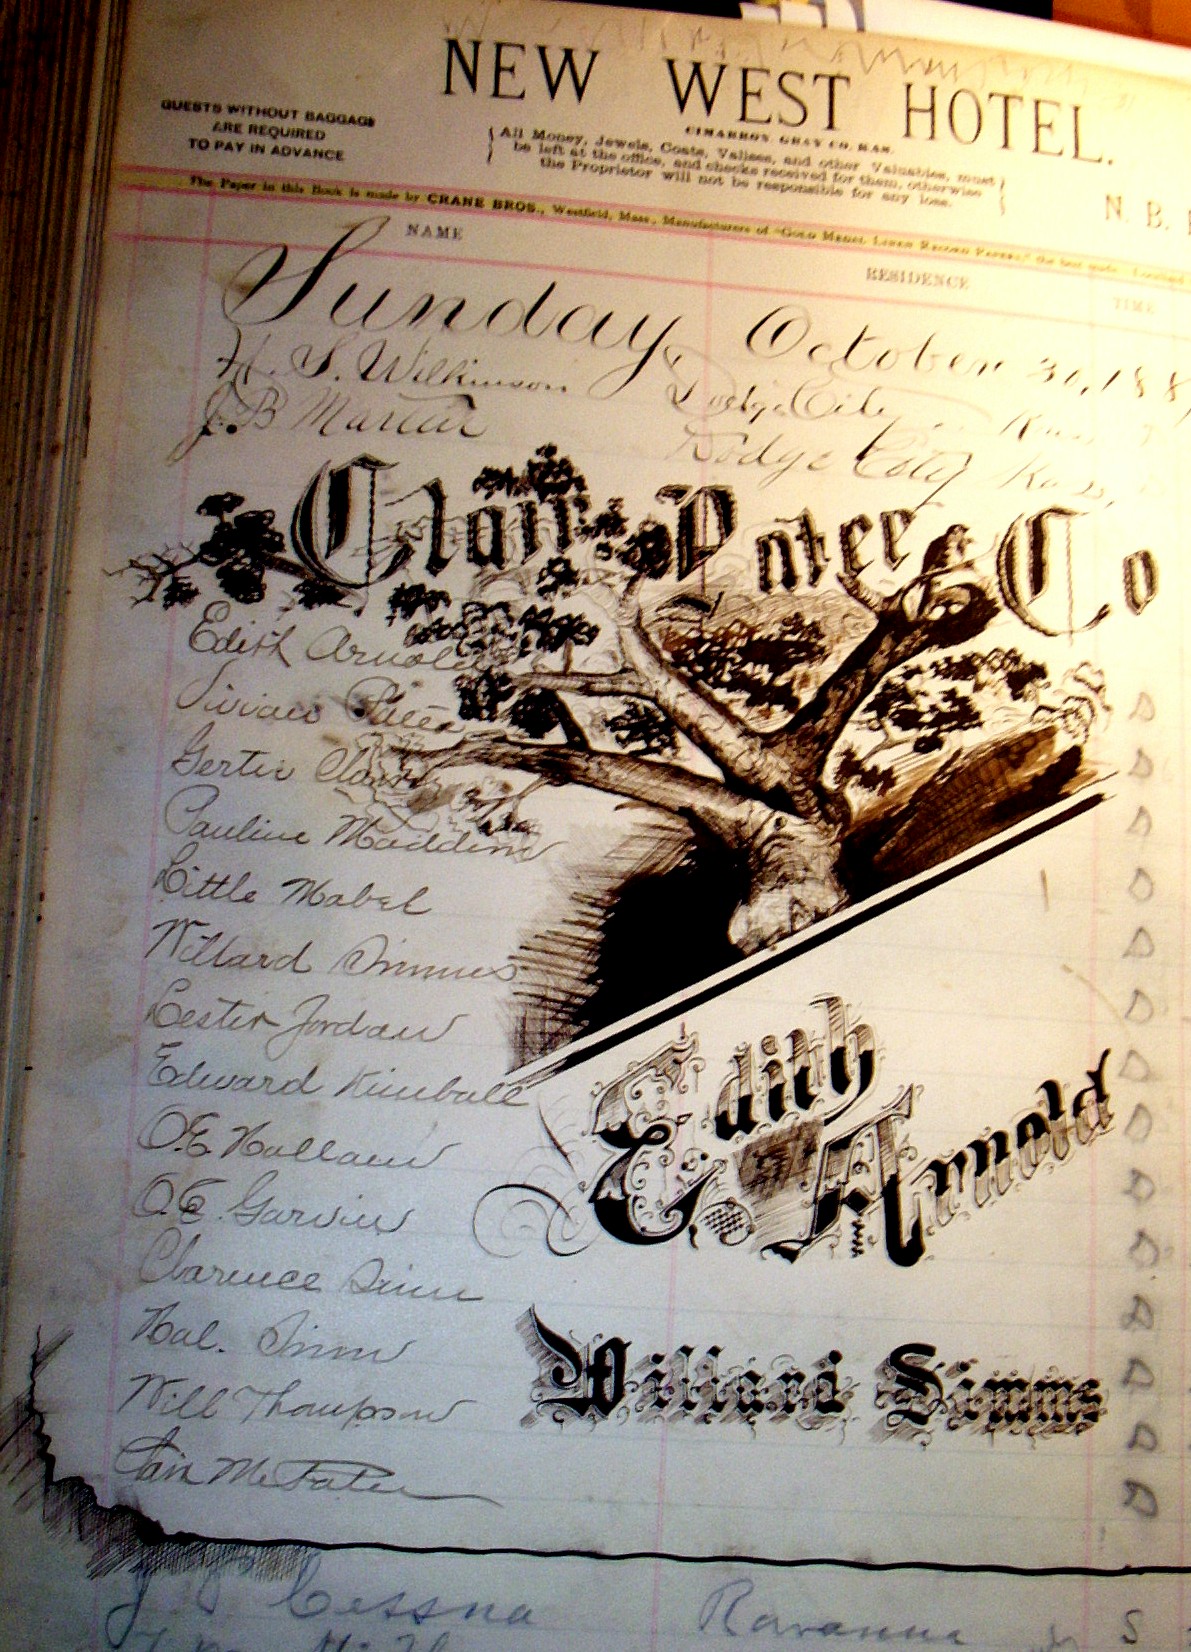 NEW WEST HOTEL.
CIMARRON, GRAY CO. KAS.
GUESTS WITHOUT BAGGAGE
ARE REQUIRED
TO PAY IN ADVANCE
All Money, Jewels, Coats, Valises, and other Valuables, must
be left at the office, and checks received for them, otherwise
the Proprietor will not be responsible for any loss.
N. B.
The Paper in this Book is made by CRANE BROS., Westfield, Mass., Manufacturers of "GOLD MEDAL LINEN RECORD PAPERS,"
NAME RESIDENCE TIME
Sunday, October 30, 188
H. S. Wilkinson Dodge City Kan
J. B Dodge City Kas.
Clair Patee Co
Edith Arnold D
Vivian Patee D
Gertie Clair D
Pauline Maddern D
Little Mabel D
Willard Simms D
Lester Jordan D
Edward Kimball D
O.E. Hallam D
O.E. Garvin D
Clarence D
Hal. D
Will Thompson D
D
Edith
Arnold
Willard Simms
Cessna Ravanna S